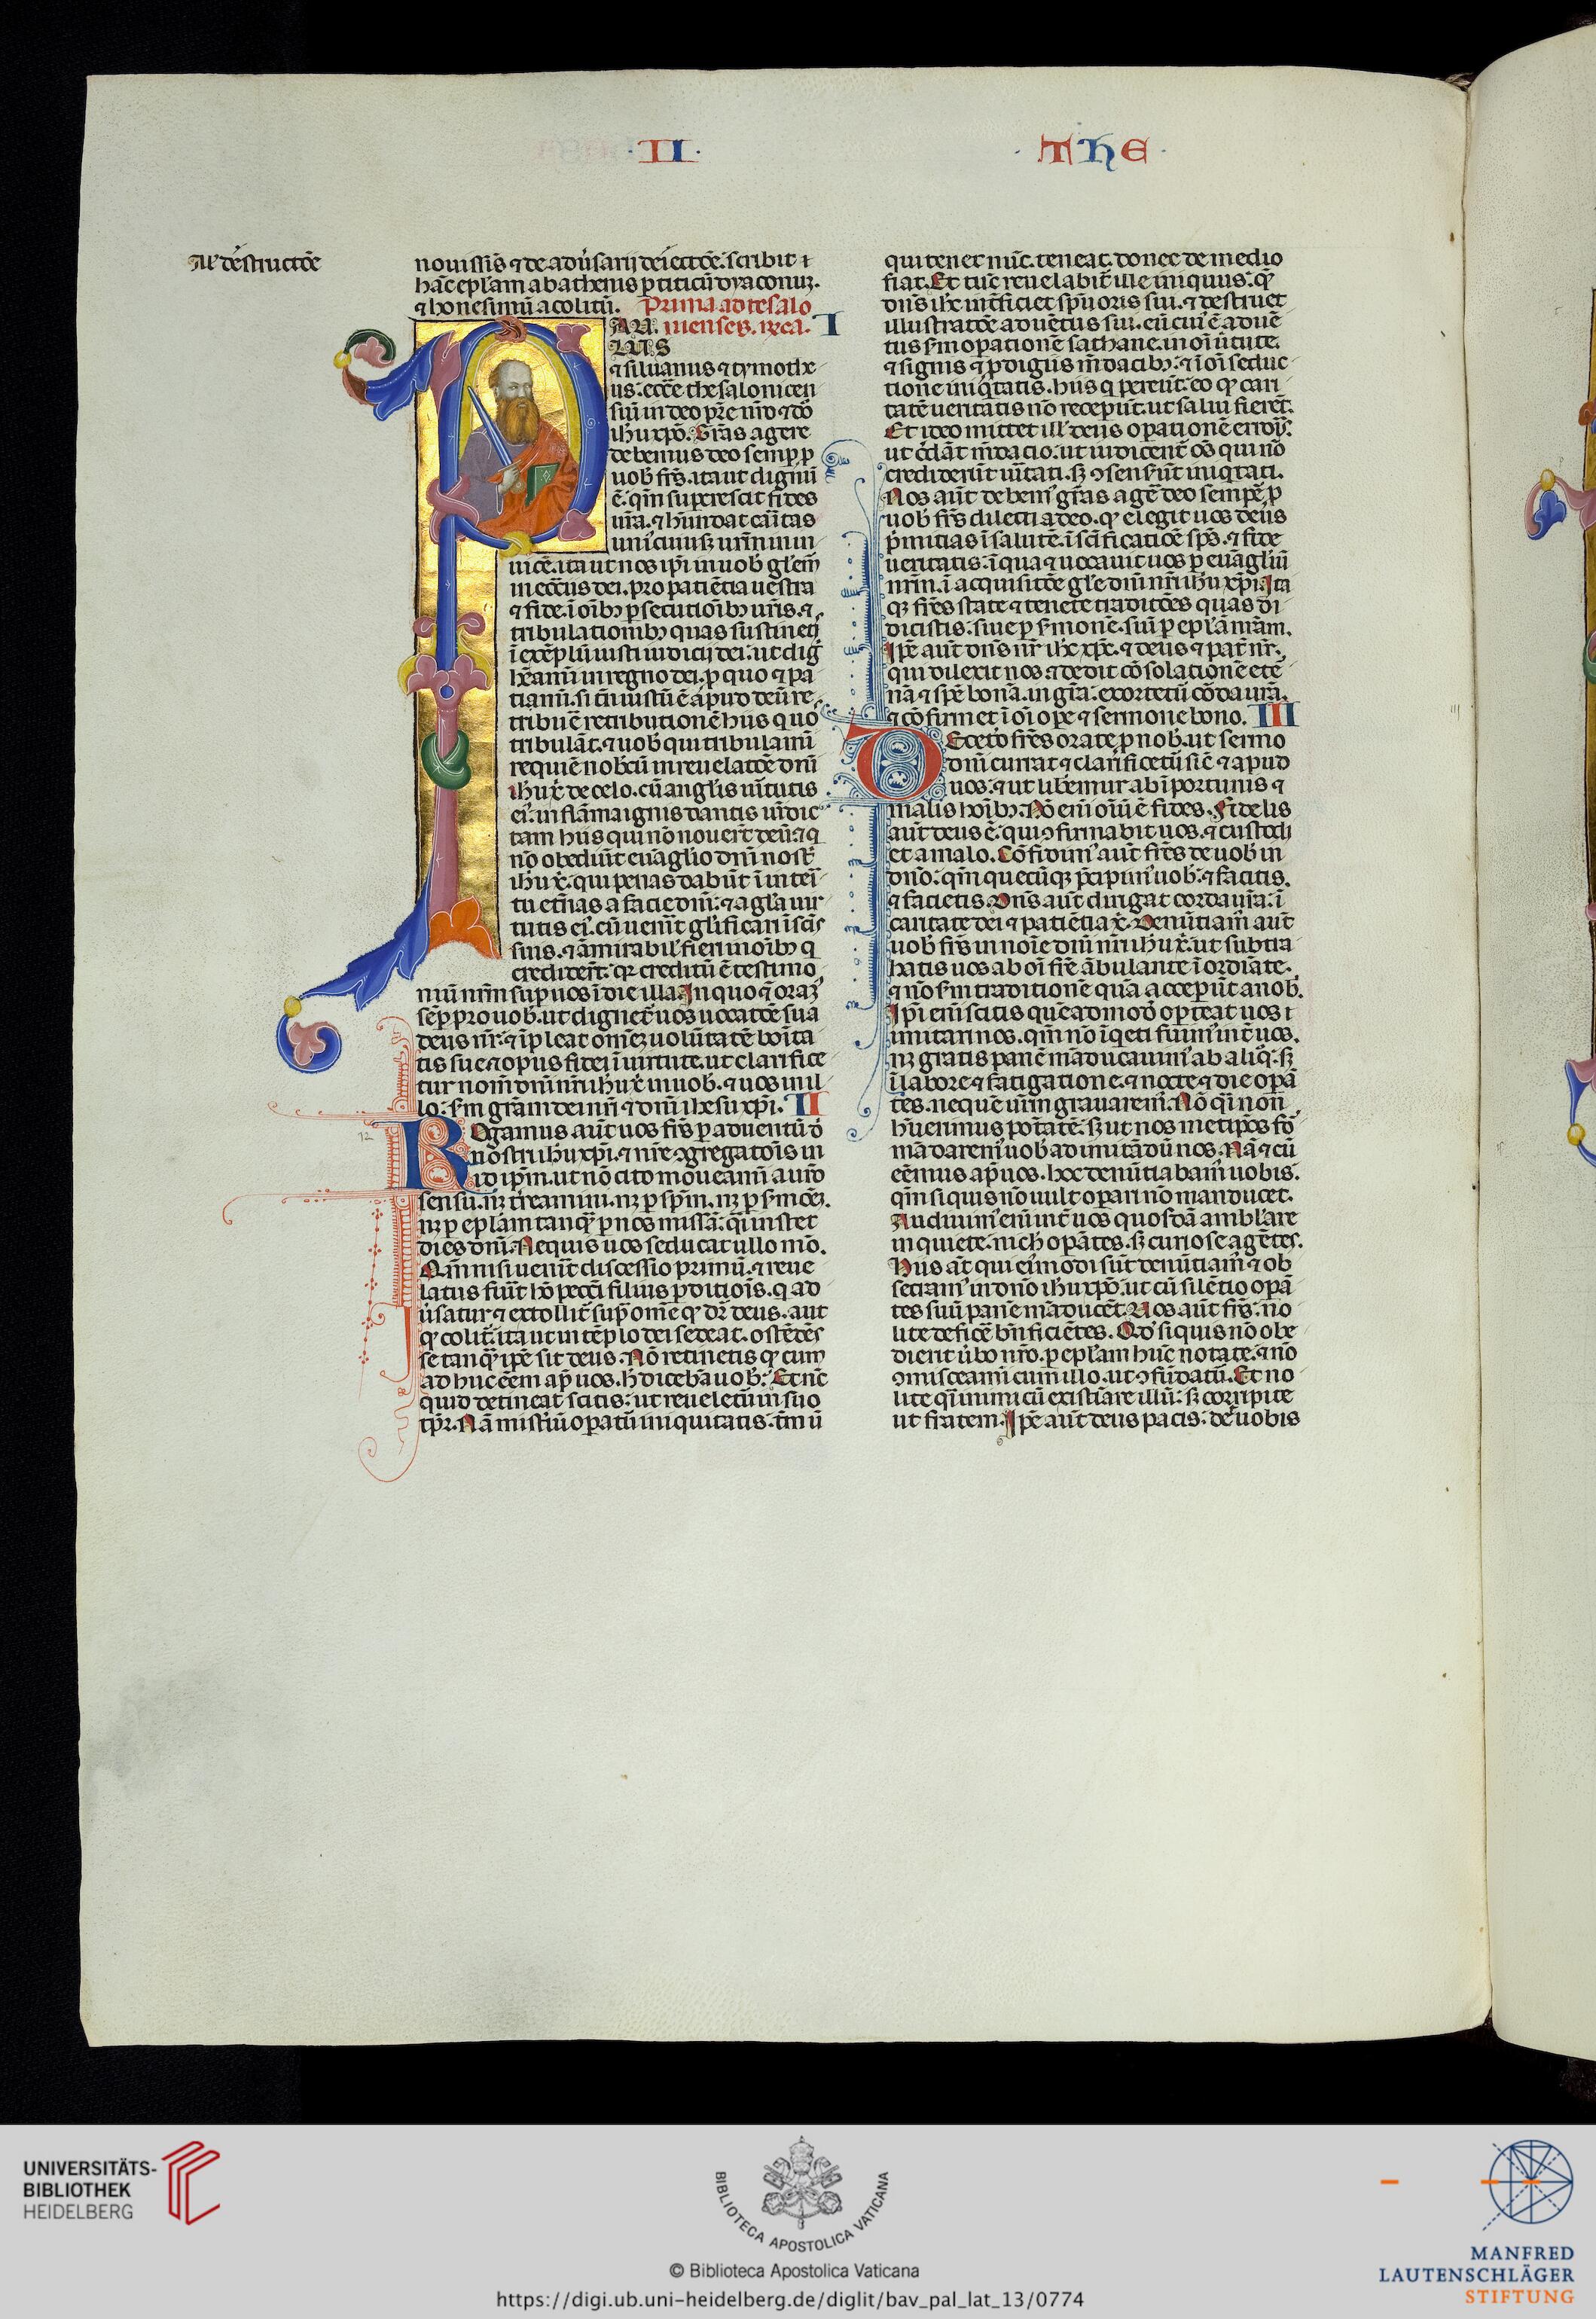 ·II· ·ThE·
ipsius destructōe
nouissīs ⁊ de adūsarij deiectōe. scribit ⁊
hāc epl̄am ab athenis p titicū dyaconuꝫ.
⁊ honesimū acolitū. Prima ad tesalo
AU nienses. I
LUS
⁊ siluanus ⁊ tymothe
us. ecc̄e thesalonicen
siū in deo pr̄e nr̄o ⁊ do
ihu xp̄o. Gr̄as agere
debemus deo semp p
uob frs̄. ita ut dignū
ē. qm̄ supcrescit fides
ur̄a. ⁊ hūndat caritas
uniꝯ cuiusꝫ ur̄m in in
uicē. ita ut nos ip̄i in uob gl̄em̄
in ecc̄iis dei. pro patiētia uestra
⁊ fide. ī oībꝫ psecutioībꝫ ur̄is. ⁊
tribulationibꝫ quas sustinetꝭ
ī exēplū iusti iudicij dei. ut dig
hēamī in regno dei. p quo ⁊ pa
tiamī. si tn̄ iustū ē apud deū re
tribuē retributionē hiis qui uo
tribulāt. ⁊ uob qui tribulamī
requiē nobcū in reuelatōe dn̄i
ihu x̄ de celo. cū angl̄is uirtutis
eiꝰ. in flāma ignis dantis uīdic
tam hiis qui nō nouer̄t deū. ⁊ q
nō obediūt euāglio dn̄i nostr̄
ihu x̄. qui penas dabūt ī interi
tu etn̄as a facie dn̄i. ⁊ a gl̄a uir
tutis eiꝰ. cū uenīt gl̄ificari ī scīs
suis. ⁊ āmirabil̄ fieri in oībꝫ q
crediderīt. qꝛ creditū ē testimo
niū nr̄m sup uos ī die illa. In quo ⁊ oramꝰ
sēp pro uob. ut dignet̄ uos uocatōe sua
deus nr̄. ⁊ īpleat omēꝫ uolūtatē boīta
tis sue ⁊ opus fidei ī uirtute. ut clarifice
tur nom̄ dn̄i nr̄i ihu x̄ in uob. ⁊ uos in il
lo. sm̄ grām dei nr̄i ⁊ dn̄i ihesu xp̄i. II
Rogamus aūt uos frs̄ p aduentū d
nostri ihu xp̄i. ⁊ nr̄e ꝯgregatoīs in
id ip̄m. ut nō cito moueamī a uro
sensu. nꝫ treamini. nꝫ p sp̄m. nꝫ p smōeꝫ.
nꝫ p epl̄am tanqꝫ p nos missā. q̄i instet
dies dn̄i. Nequis uos seducat ullo mō.
Qm̄ nisi uenīt discessio primū. ⁊ reue
latus fuīt hō pecc̄i filius pditioīs. q ad
ūsatur ⁊ extollit̄ sup̄ omē qꝫ dr̄ deus. aut
qꝫ colit̄. ita ut in tēplo dei sedeat. ostēdēs
se tanqꝫ ip̄e sit deus. Nō retinetis qꝫ cum
adhuc eēm ap̄ uos. h̄ dicebā uob. Et nc̄
quid detineat scitis. ut reueletur in suo
tp̄r. Nā misteriū opatur iniquitatis. tm̄ ū
qui tenet nūc. teneat. donec de medio
fiat. Et tūc reuelabit̄ ille iniquus. qꝫ
dn̄s ihc̄ int̄ficiet spū oris sui. ⁊ destruet
illustratōe aduētus sui. eū cuiꝰ ē aduē
tus sm̄ opationē sathane. in oī ūtute.
⁊ signis ⁊ pdigiis mīdacibꝫ. ⁊ ī oī seduc
tione iniqtatis. hiis q pereūt. eo qꝫ cari
tatē ueritatis nō recepūt. ut salui fierēt.
Et ideo mittet ill̄ deus opationē erroris.
ut cdāt mdacio. ut iudicent̄ oēs qui nō
credidert uītati. sꝫ ꝯsensert iniqtati.
Nos aūt debemꝰ gr̄as agē deo sempē p
uob frs̄ dilecti a deo. qꝫ elegit uos deus
pmitias ī salutē. ī scīficatiōe sps̄. ⁊ fide
ueritatis. ī qua ⁊ uocauit uos p euāgliū
nr̄m. ī acquisitōe gl̄e dn̄i nr̄i ihu xp̄i. Ita
qꝫ frēs state ⁊ tenete traditōes quas di
dicistis. siue p smonē. siū p epl̄am nr̄am.
Ip̄e aūt dn̄s nr̄ ihc̄ xp̄c. ⁊ deus ⁊ pat̄ nr̄.
qui dilexit nos ⁊ dedit cōsolationē etē
nā ⁊ spē bonā. in grā. exortetur corda ur̄a.
⁊ cōfirmet ī oī ope ⁊ sermone bono. III
De ceto frēs orate p nob. ut sermo
dn̄i currat ⁊ clarificetur sic̄ ⁊ apud
uos. ⁊ ut libemur ab īportunis ⁊
malis hoībꝫ. Nō enī oīum ē fides. Fidelis
aūt deus ē. qui ꝯfirmabit uos. ⁊ custodiꝫ
et a malo. Cōfidimꝰ aūt frēs de uob in
dn̄o. qm̄ quecūqꝫ p̄cipimꝰ uob. ⁊ facitis.
⁊ facietis. Dn̄s aūt dirigat corda ur̄a. ī
caritate dei ⁊ patiētia x̄. Denūtiamꝰ aūt
uob frs̄ in noīe dn̄i nr̄i ihu x̄. ut subtra
hatis uos ab oī frē ābulante īordīate.
⁊ nō sm̄ traditionē quā accepūt a nob.
Ip̄i enī scitis quēadmodū opteat uos ⁊
imitari nos. qm̄ nō īqeti fuimꝰ int̄ uos.
nꝫ gratis panē māducauimꝰ ab aliqͦ. sꝫ
ī labore ⁊ fatigatione. ⁊ nocte ⁊ die opā
tes. neque ur̄m grauaremꝰ. Nō q̄i non
hūerimus potatē. sꝫ ut nos metip̄os fō
mā daremꝰ uob ad imitādū nos. Nā ⁊ cū
eēmus ap̄ uos. hoc denūtiabamꝰ uobis.
qm̄ si quis nō uult opari nō manducet.
Audiuimꝰ enī int̄ uos quosdā ambl̄are
inquiete. nich̄ opātes. sꝫ curiose agētes.
Hiis at̄ qui eiꝰmōdi sūt denūtiamꝰ ⁊ ob
secramꝰ in dn̄o ihu xp̄o. ut cū silētio opā
tes suū panē māducēt. Uos aūt frs̄. no
lite deficē bn̄ficiētes. Qd̄ si quis nō obe
dierit ūbo nr̄o. p epl̄am hūc notate. ⁊ nō
ꝯmisceamī cum illo. ut ꝯfūdatur. Et no
lite q̄i inimicū existīare illū. sꝫ corripite
ut fratrem. Ip̄e aūt deus pacis. det uobis
12
UNIVERSITÄTS-
BIBLIOTHEK
HEIDELBERG
BIBLIOTECA APOSTOLICA VATICANA
© Biblioteca Apostolica Vaticana
https://digi.ub.uni-heidelberg.de/diglit/bav_pal_lat_13/0774
MANFRED
LAUTENSCHLÄGER
STIFTUNG